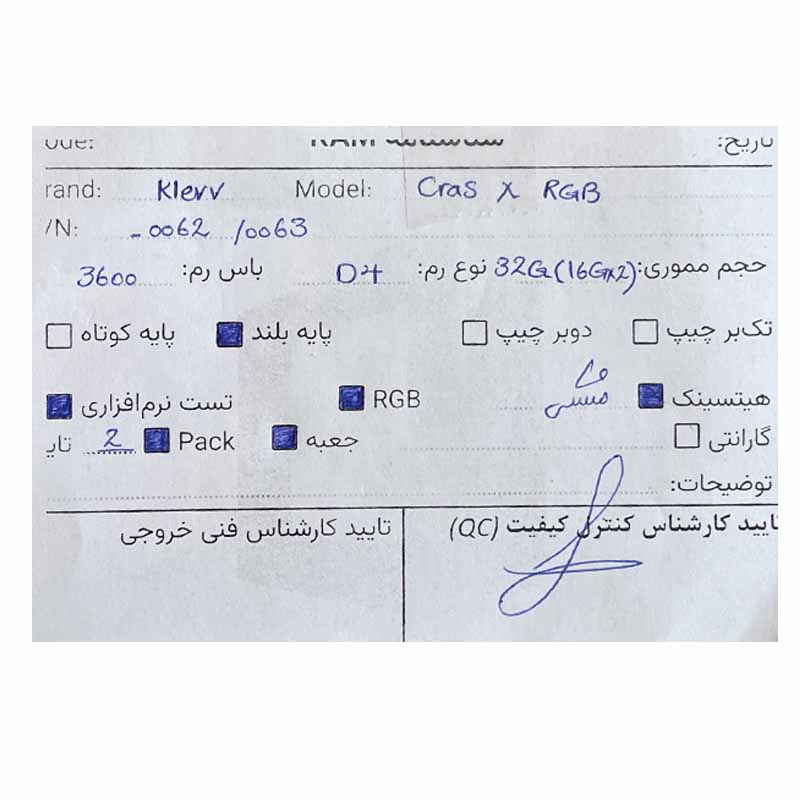 تاریخ: RAM
rand: Klevv Model: Cras X RGB
/N: -0062 /0063
حجم مموری: 32G (16G×2) نوع رم: D4 باس رم: 3600
تک‌بر چیپ دوبر چیپ پایه بلند پایه کوتاه
هیتسینک مشکی RGB تست نرم‌افزاری
گارانتی جعبه Pack 2 تای
توضیحات:
تایید کارشناس کنترل کیفیت (QC) تایید کارشناس فنی خروجی